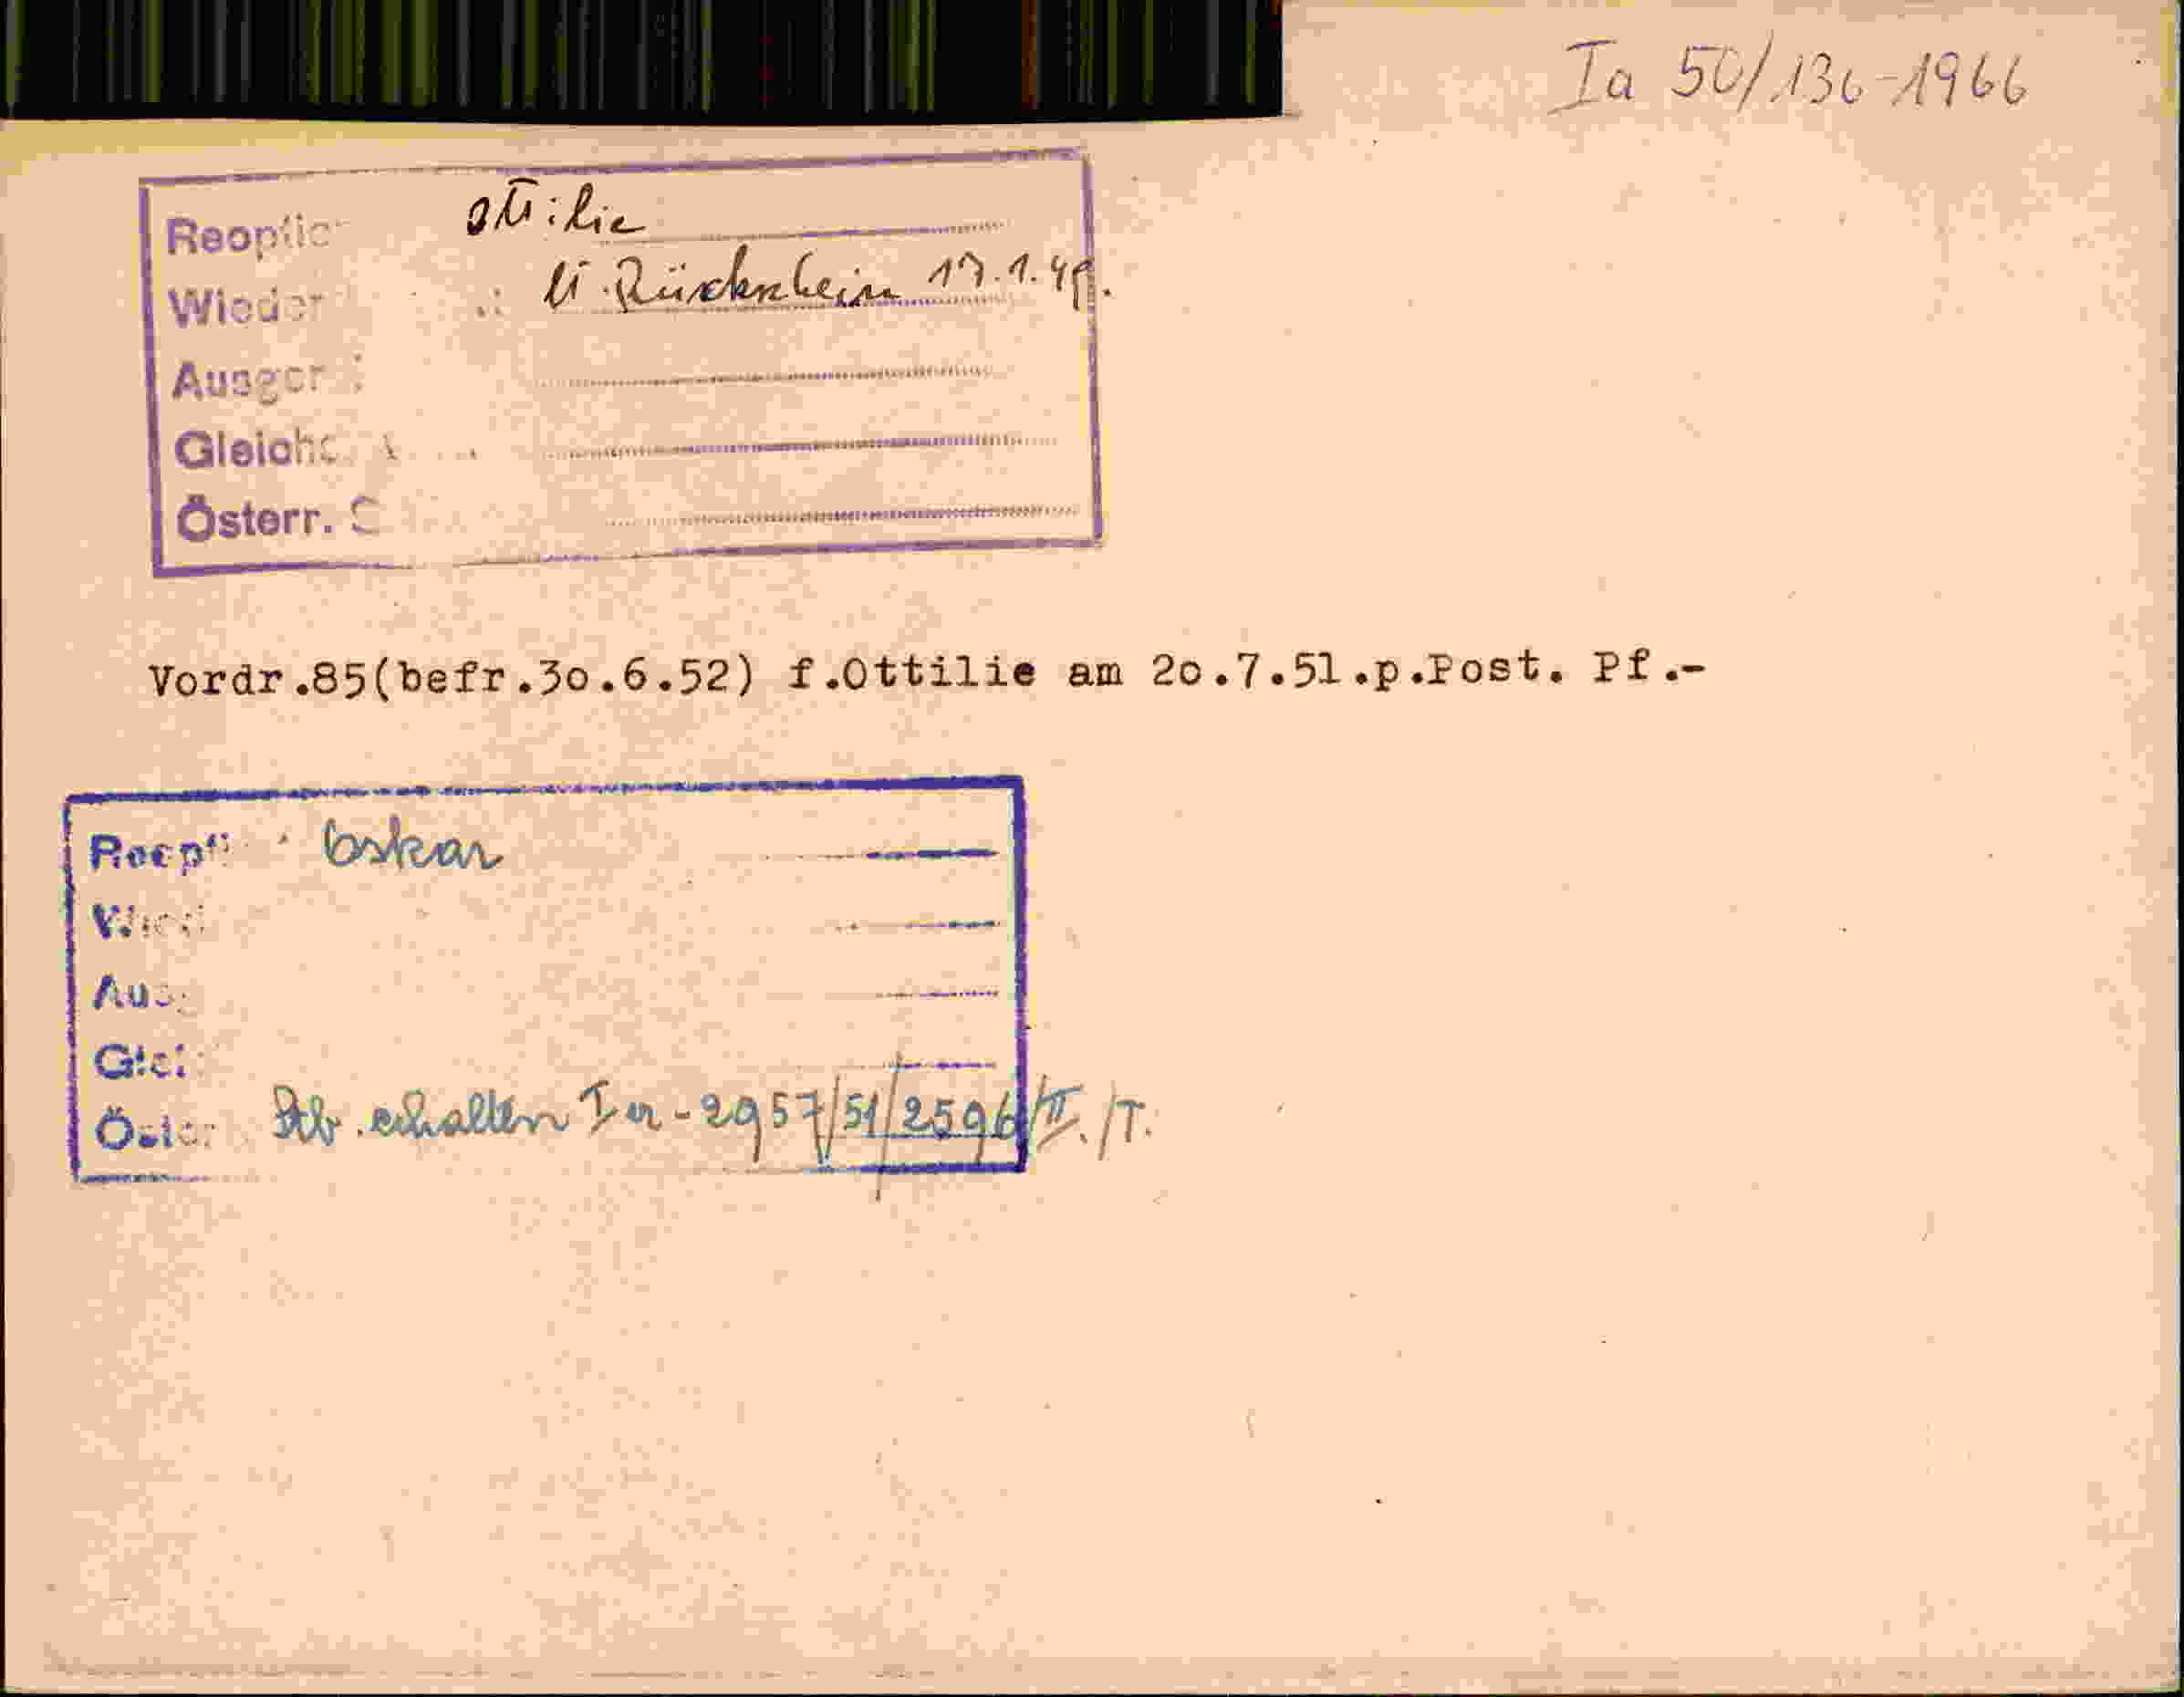 Ia 50/136-1966
Reoptio
Ottilie
Wieder
lt. Rückschein 17.1.49.
Ausger
Gleichs
Österr.
Vordr.85(befr.30.6.52) f.Ottilie am 20.7.51.p.Post. Pf.-
Reopt
Oskar
Wied
Aus
Glei
Öster
Stb. erhalten Ia-2957/51/2596/II./T.